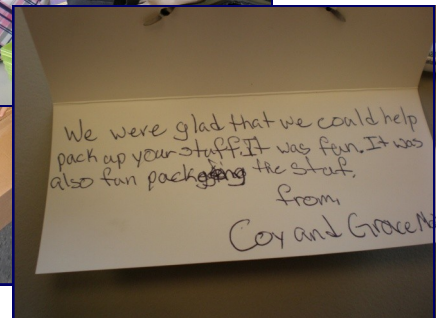 We were glad that we could help
pack up your stuff. It was fun. It was
also fun packing the stuf.
from,
Coy and Grace